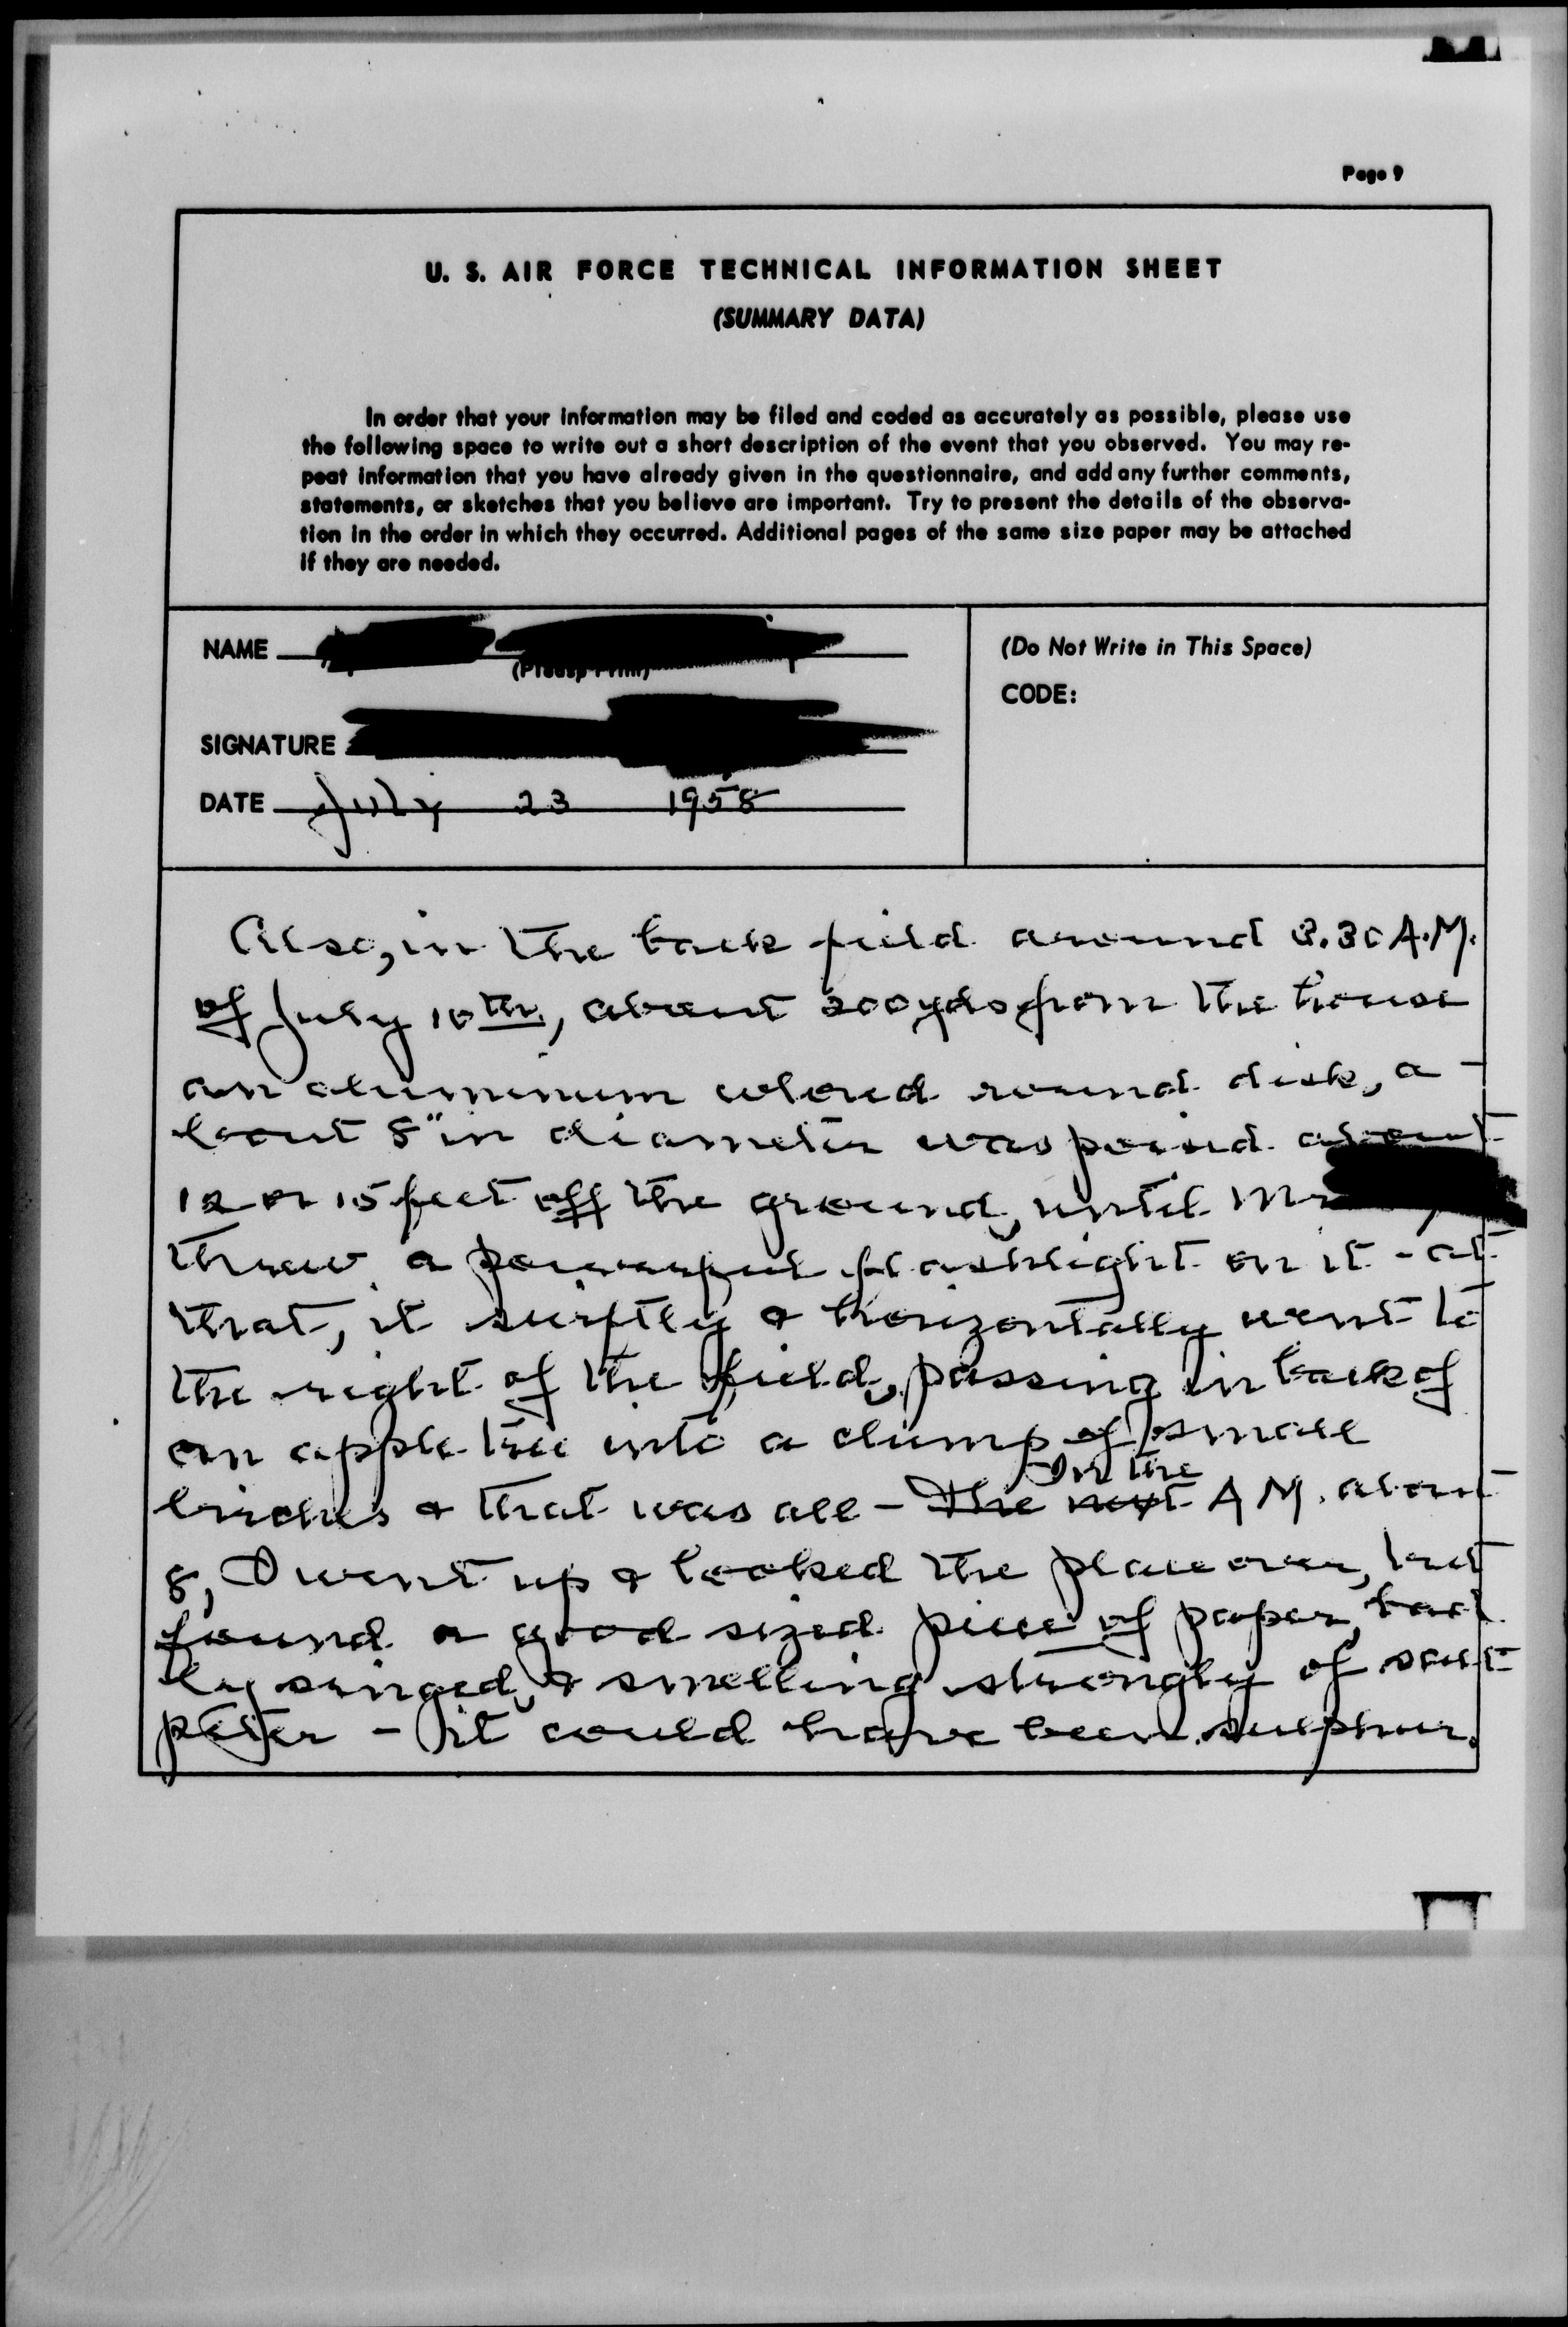 Page 9
U. S. AIR FORCE TECHNICAL INFORMATION SHEET
(SUMMARY DATA)
In order that your information may be filed and coded as accurately as possible, please use
the following space to write out a short description of the event that you observed. You may re-
peat information that you have already given in the questionnaire, and add any further comments,
statements, or sketches that you believe are important. Try to present the details of the observa-
tion in the order in which they occurred. Additional pages of the same size paper may be attached
if they are needed.
NAME
(Please Print)
SIGNATURE
DATE July 23 1958
(Do Not Write in This Space)
CODE:
Also, in the back field around 3.30 A.M.
of July 10th, about 200 yds from the house
an aluminum colored round disk, a-
bout 8" in diameter was poised about
12 or 15 feet off the ground, until Mr
threw a powerful flashlight on it - at
that, it swiftly & horizontally went to
the right of the field, passing in back of
an apple tree into a clump of small
birches & that was all - The next On the A M. about
8, I went up & looked the place over, but
found a good sized piece of paper, bad
ly singed, & smelling strongly of salt
peter - it could have been sulphur.